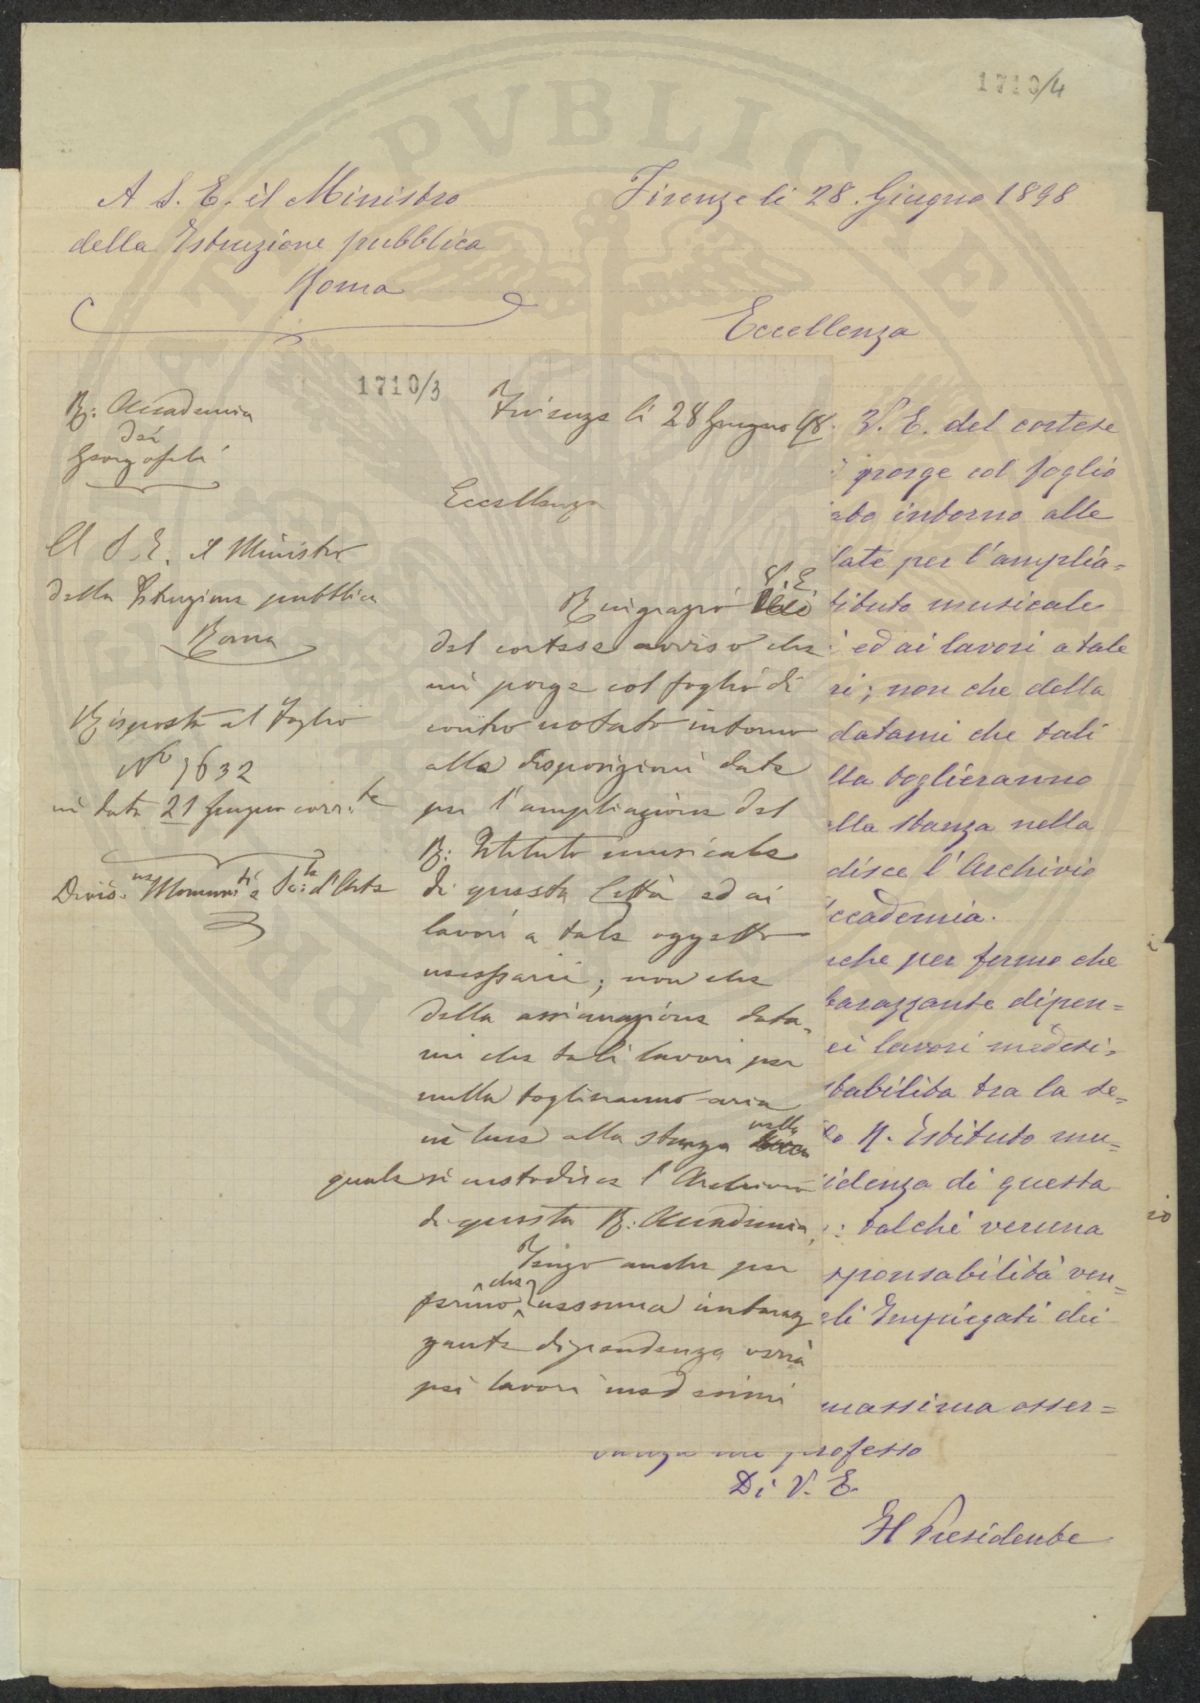 1710/4
A S. E. il Ministro
della Istruzione pubblica
Roma
Firenze li 28. Giugno 1898
Eccellenza
1710/3
R: Accademia
dei
Georgofili
A S. E. il Ministro
della Istruzione pubblica
Roma
Risposta al Foglio
No 7632
in data 21 Giugno corr.te
Divis.ne Monum.ti e Og.ti d'Arte
Firenze li 28 Giugno 98.
Eccellenza
Ringrazio V. E.
del cortese avviso che
mi porge col foglio di
contro notato intorno
alle disposizioni date
per l'ampliazione del
R: Istituto musicale
di questa Città ed ai
lavori a tale oggetto
necessarii; non che
della assicurazione data-
mi che tali lavori per
nulla toglieranno aria
nè luce alla stanza nella
quale si custodisce l'Archivio
di questa R: Accademia.
Tengo anche per
fermo che nessuna imbaraz
zante dipendenza verrà
pei lavori medesimi
V. E. del cortese
porge col foglio
ato intorno alle
date per l'amplia=
tituto musicale
ed ai lavori a tale
ri; non che della
datami che tali
lla toglieranno
alla stanza nella
disce l'Archivio
ccademia.
che per fermo che
barazzante dipen=
ei lavori medesi=
tabilita tra la se=
to R. Istituto mu=
idenza di questa
: talchè veruna
sponsabilità ven=
gli Impiegati dei
massima osser=
vanza mi professo
Di V. E.
Il Presidente